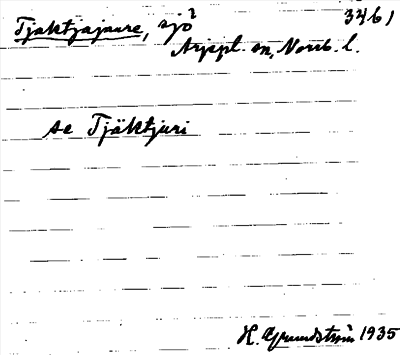 Tjaktjajaure, sjö? 3461
Arjepl. sn, Norrb. l.
se Tjäktjuri
H. Grundström 1935